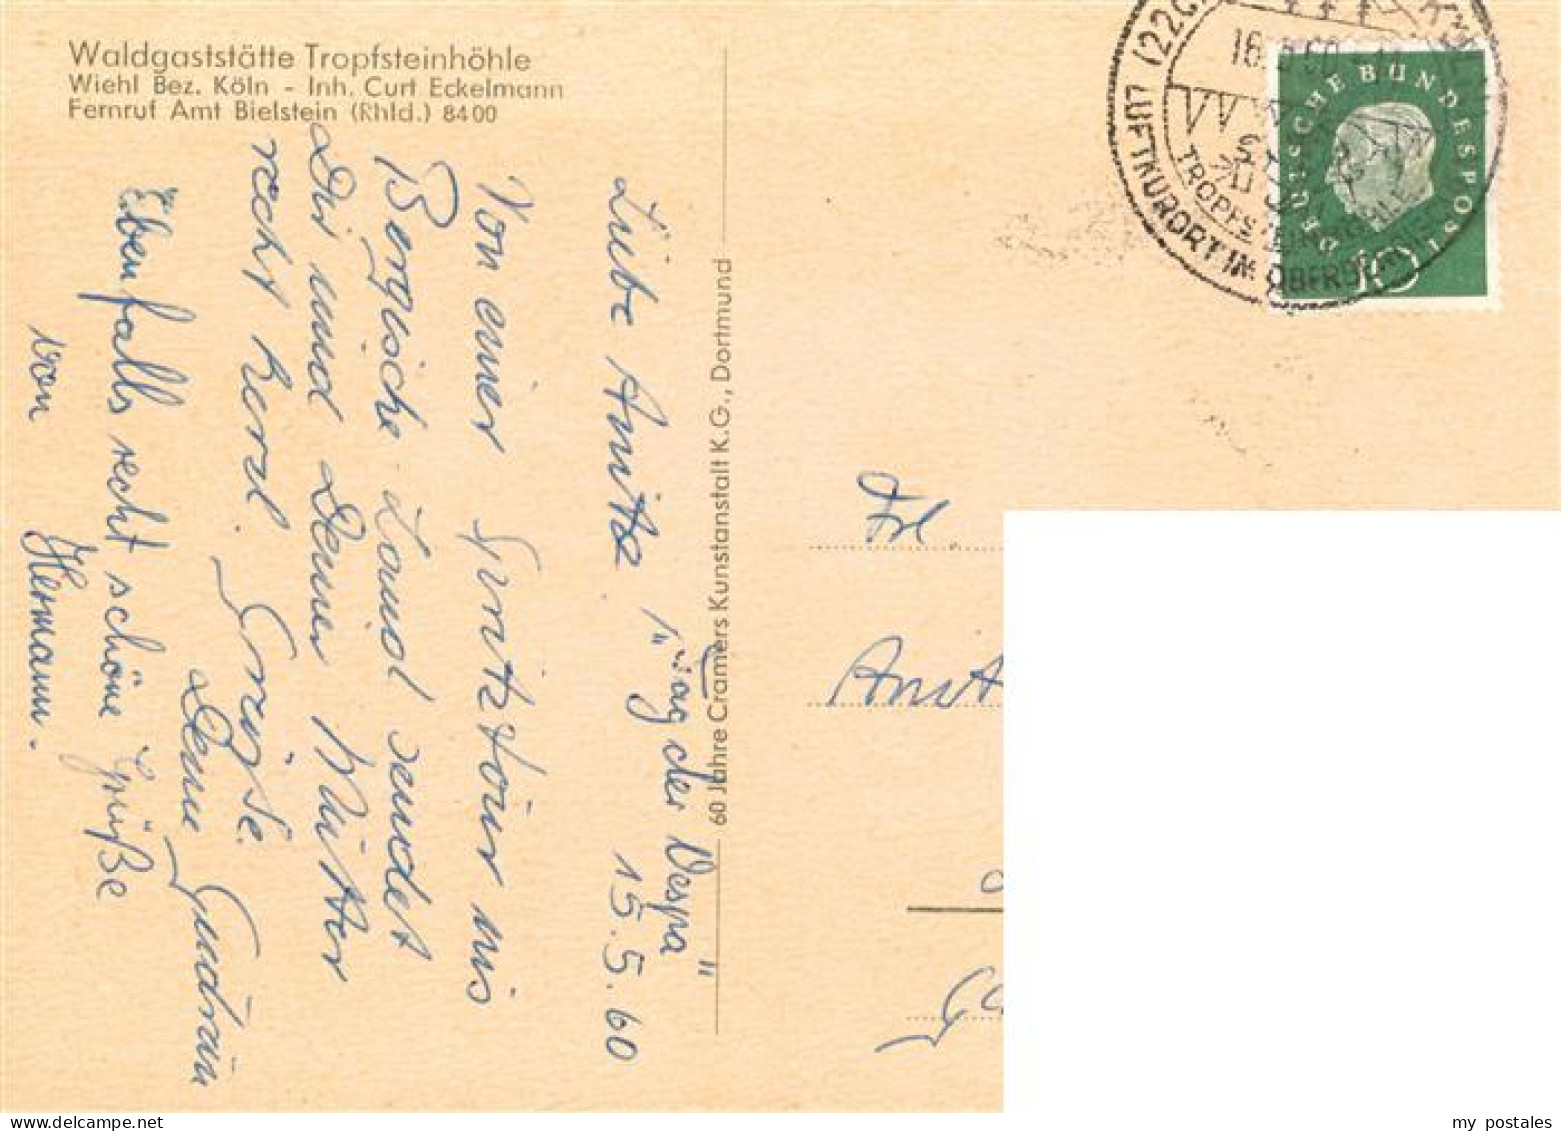 Waldgaststätte Tropfsteinhöhle
Wiehl Bez. Köln - Inh. Curt Eckelmann
Fernruf Amt Bielstein (Rhld.) 8400
15.5.60
Liebe Anita!
"Tag der Vespa"
Von einer Spritztour ins
Bergische Land sendet
Dir und Deiner Mutter
recht herzl. Grüße.
Deine Gudrun
Ebenfalls recht schöne Grüße
von Hermann.
60 Jahre Cramers Kunstanstalt K.G., Dortmund
LUFTKURORT IM
TROPFSTEIN
16.
DEUTSCHE BUNDESPOST
10
Frl.
Anit
my postales